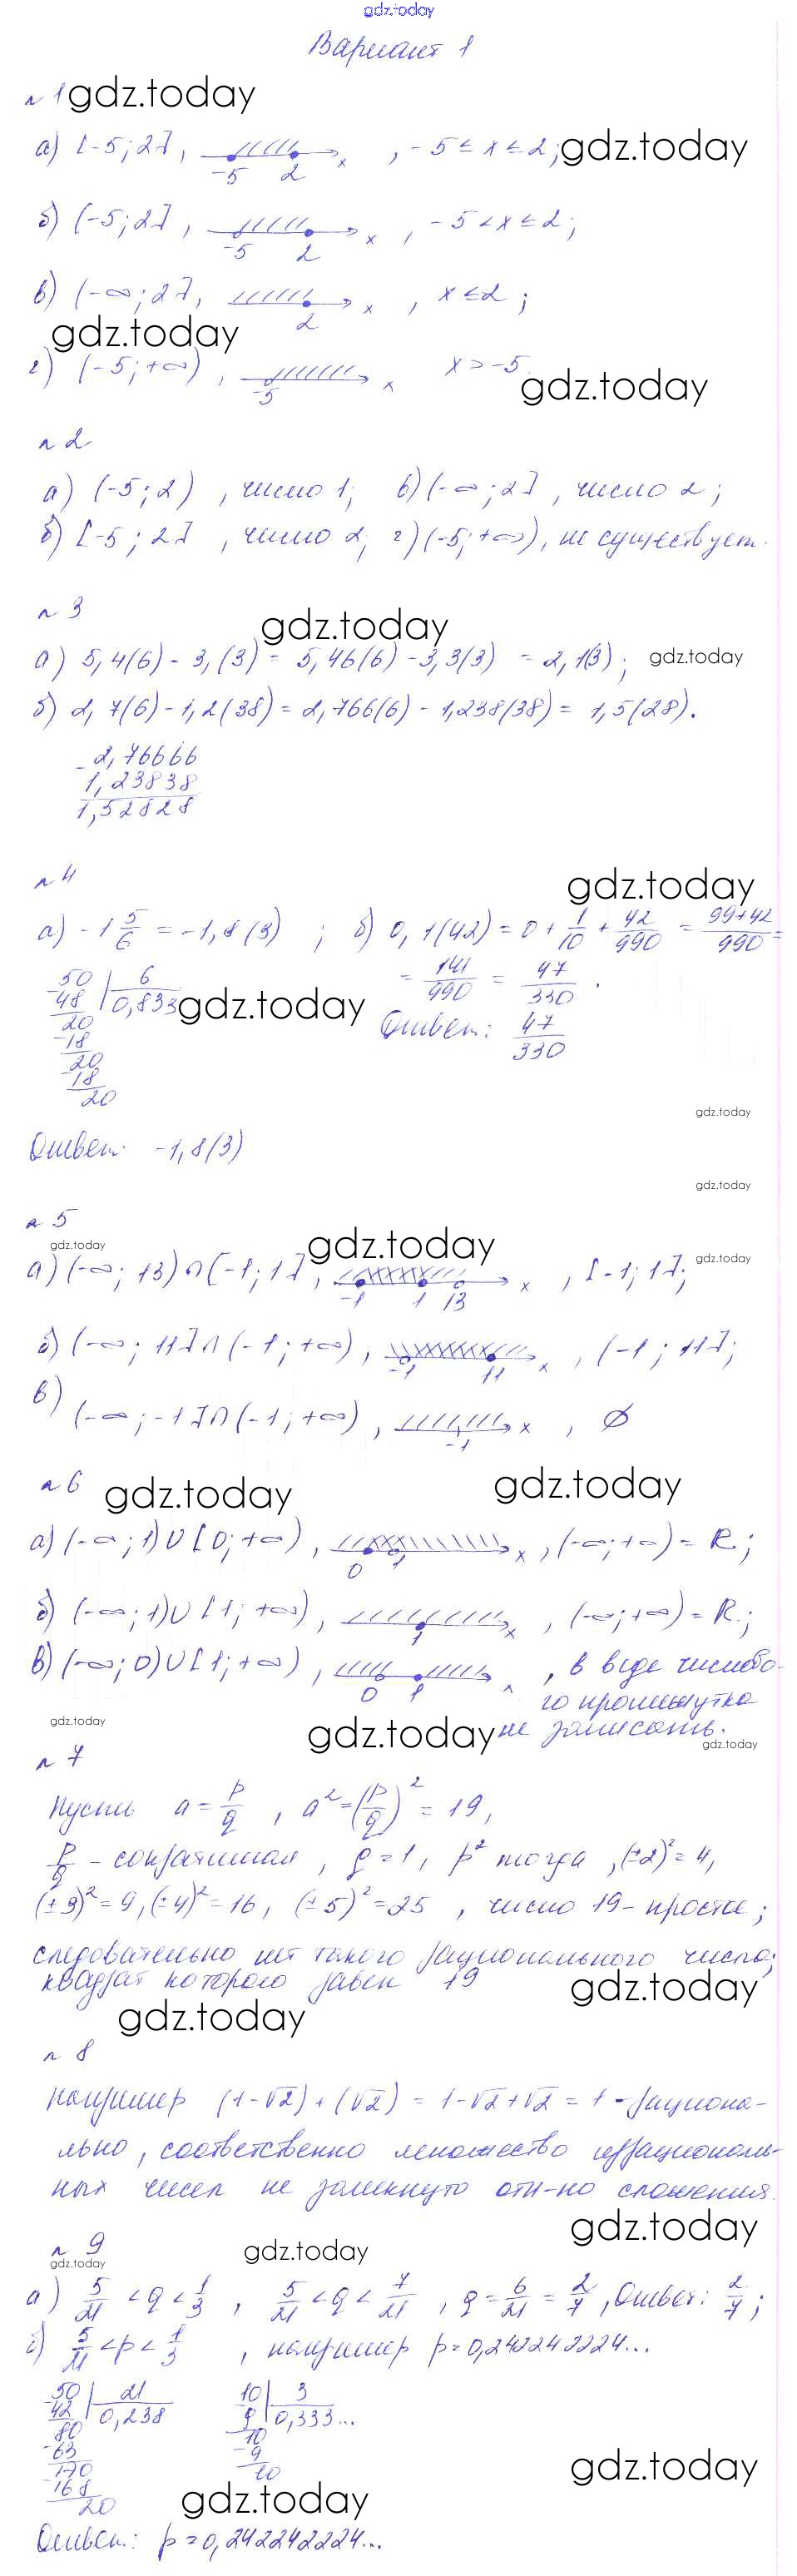 gdz.today
Вариант 1
№ 1 gdz.today
а) [-5; 2], -5 2 x , -5 ≤ x ≤ 2; gdz.today
б) (-5; 2], -5 2 x , -5 < x ≤ 2;
в) (-∞; 2], 2 x , x ≤ 2;
gdz.today
г) (-5; +∞), -5 x x > -5.
gdz.today
№ 2
а) (-5; 2), число 1; в) (-∞; 2], число 2;
б) [-5; 2], число 2; г) (-5; +∞), не существует.
№ 3
gdz.today
а) 5,4(6) - 3,(3) = 5,46(6) - 3,3(3) = 2,1(3); gdz.today
б) 2,7(6) - 1,2(38) = 2,766(6) - 1,238(38) = 1,5(28).
- 2,76666
1,23838
1,52828
№ 4
gdz.today
а) -1 5/6 = -1,8(3) ; б) 0,1(42) = 0 + 1/10 + 42/990 = 99+42/990 =
= 141/990 = 47/330 .
50 | 6
-48 | 0,833 gdz.today
20
-18
20
-18
20
Ответ: 47/330
gdz.today
Ответ: -1,8(3)
gdz.today
№ 5
gdz.today
gdz.today
gdz.today
а) (-∞; 13) ∩ [-1; 1], -1 1 13 x , [-1; 1];
б) (-∞; 11] ∩ (-1; +∞), -1 11 x , (-1; 11];
в) (-∞; -1] ∩ (-1; +∞), -1 x , ∅
№ 6
gdz.today gdz.today
а) (-∞; 1) ∪ [0; +∞), 0 1 x , (-∞; +∞) = R;
б) (-∞; 1) ∪ [1; +∞), 1 x , (-∞; +∞) = R;
в) (-∞; 0) ∪ [1; +∞), 0 1 x , в виде числово-
го промежутка
не записать.
gdz.today gdz.today gdz.today
№ 7
Пусть a = p/q , a² = (p/q)² = 19,
p/q - сократимая, q = 1, p² тогда, (±2)² = 4,
(±3)² = 9, (±4)² = 16, (±5)² = 25 , число 19 - простое;
следовательно нет такого рационального числа;
квадрат которого равен 19
gdz.today
gdz.today
№ 8
например (1-√2) + (√2) = 1-√2+√2 = 1 - рациона-
льно, соответственно множество иррациональ-
ных чисел не замкнуто отн-но сложения.
gdz.today
№ 9
gdz.today gdz.today
а) 5/21 < q < 1/3 , 5/21 < q < 7/21 , q = 6/21 = 2/7 , Ответ: 2/7;
б) 5/21 < p < 1/3 , например p = 0,242242224...
50 | 21
-42 | 0,238
80
-63
170
-168
20
10 | 3
-9 | 0,333...
10
-9
10
gdz.today
gdz.today
Ответ: p = 0,242242224...